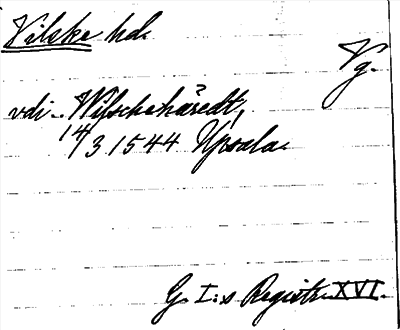 Vilske hd.
Vg.
vdi – Wilschehäredt,
14/3 1544 Upsala.
G. I:s Registr. XVI.